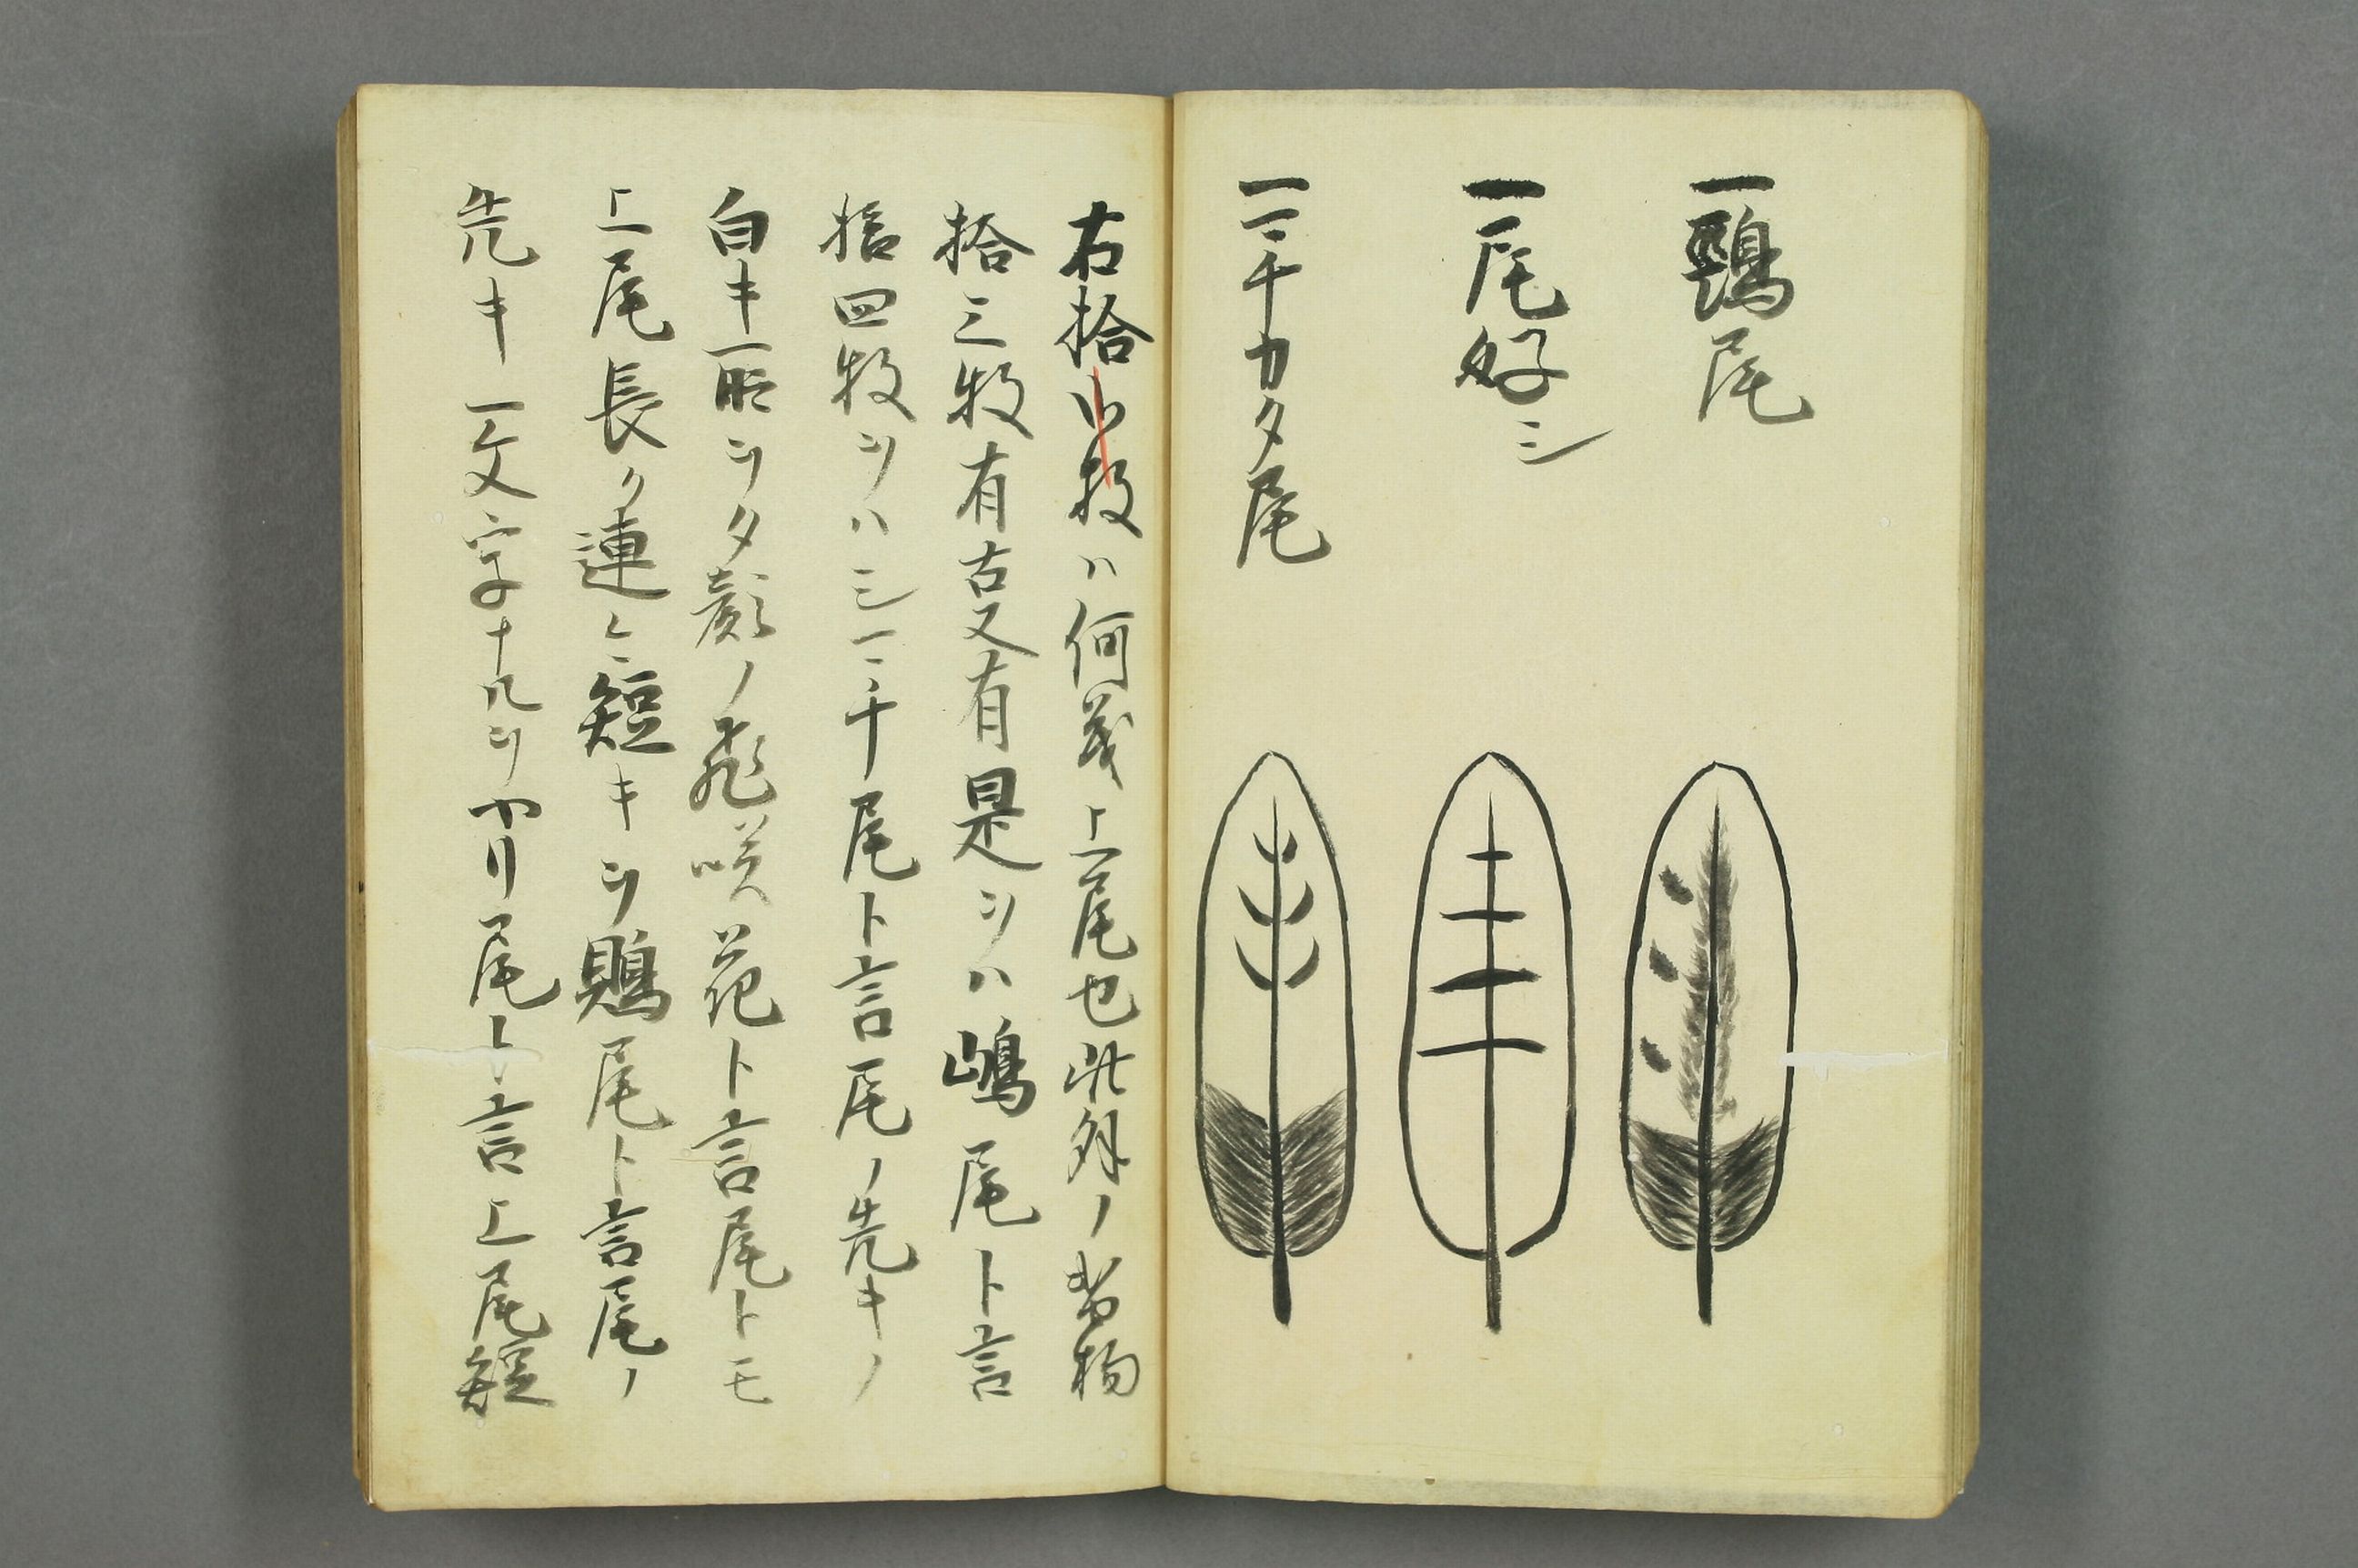 一鶚尾
一尾好シ
一ニ千カタ尾
右拾 枚ハ何茂上尾也此外ノ
拾三枚有古又有是ヲハ嶋尾ト言
拾四枚ヲハ三ニ千尾ト言尾ノ先キノ
白キ所ヲタ ノ飛咲花ト言尾トモ
上尾長ク連 短キヲ鵙尾ト言尾ノ
先キ一文字十九ヲ リ尾ト言上尾短